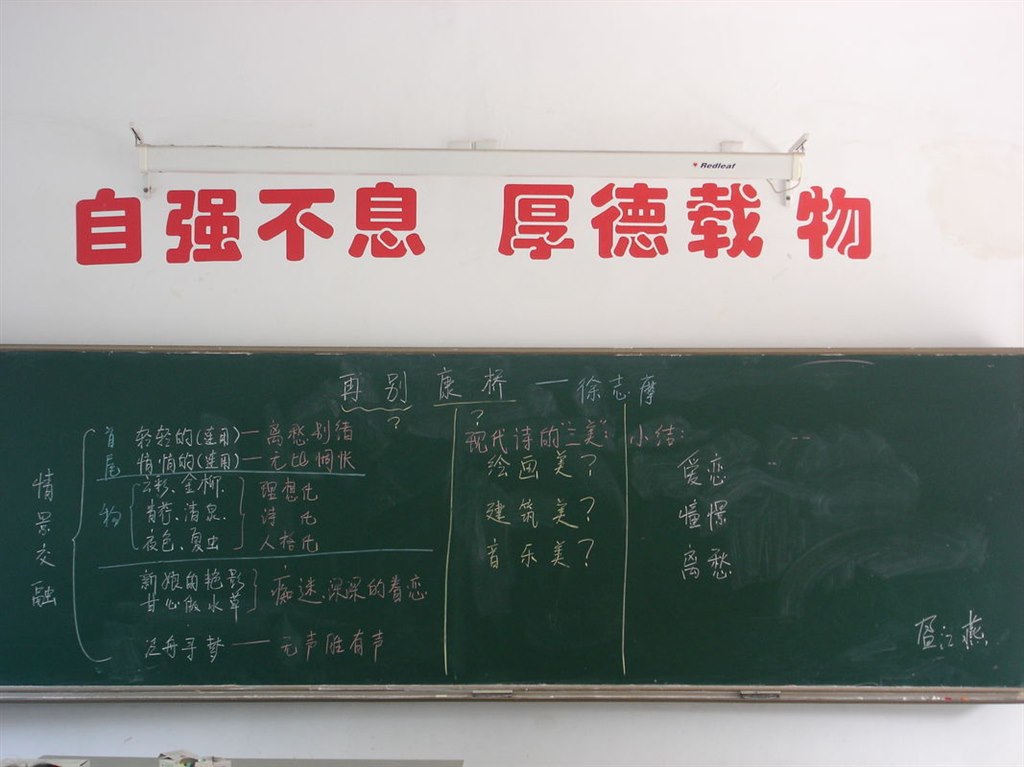 Redleaf
自强不息 厚德载物
再别康桥 — 徐志摩
? ?
情景交融
首尾
轻轻的(连用) — 离愁别绪
悄悄的(连用) — 无比惆怅
物
云彩、金柳、 理想化
青荇、清泉、 诗化
夜色、夏虫 人格化
新娘的艳影
甘心做水草
痴迷、深深的眷恋
泛舟寻梦 — 无声胜有声
现代诗的三美:
绘画美?
建筑美?
音乐美?
小结:
爱恋
憧憬
离愁
江燕